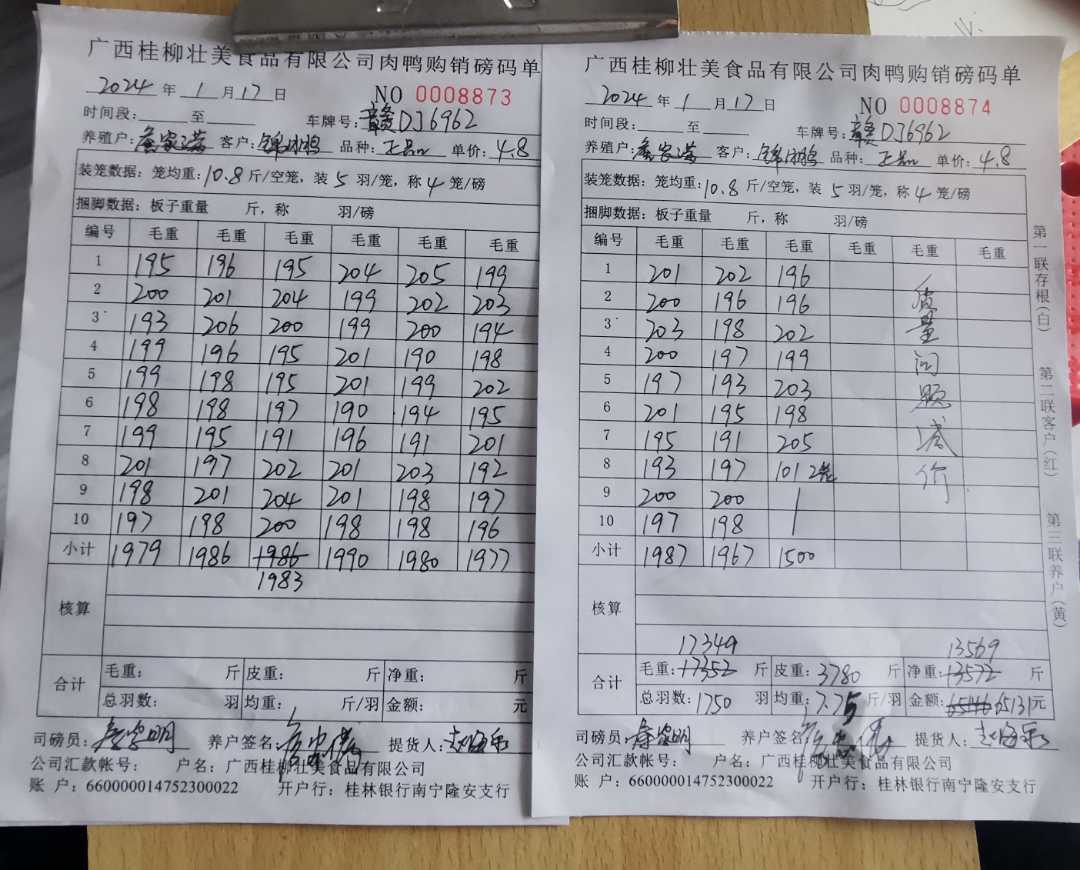 广西桂柳壮美食品有限公司肉鸭购销磅码单
2024 年 1 月 17 日 NO 0008873
时间段: 至 车牌号: 赣DJ6962
养殖户: 客户: 品种: 正品 单价: 4.8
装笼数据: 笼均重: 10.8 斤/空笼, 装 5 羽/笼, 称 4 笼/磅
捆脚数据: 板子重量 斤, 称 羽/磅
编号 毛重 毛重 毛重 毛重 毛重 毛重
1 195 196 195 204 205 199
2 200 201 204 199 202 203
3 193 206 200 199 200 194
4 199 196 195 201 190 198
5 199 198 195 201 199 202
6 198 198 197 190 194 195
7 199 195 191 196 191 201
8 201 197 202 201 203 192
9 198 201 204 201 198 197
10 197 198 200 198 198 196
小计 1979 1986 1986 1990 1980 1977
1983
核算
合计 毛重: 斤 皮重: 斤 净重: 斤
总羽数: 羽 均重: 斤/羽 金额: 元
司磅员: 养户签名: 提货人:
公司汇款帐号: 户名: 广西桂柳壮美食品有限公司
账 户: 660000014752300022 开户行: 桂林银行南宁隆安支行
广西桂柳壮美食品有限公司肉鸭购销磅码单
2024 年 1 月 17 日 NO 0008874
时间段: 至 车牌号: 赣DJ6962
养殖户: 客户: 品种: 正品 单价: 4.8
装笼数据: 笼均重: 10.8 斤/空笼, 装 5 羽/笼, 称 4 笼/磅
捆脚数据: 板子重量 斤, 称 羽/磅
编号 毛重 毛重 毛重 毛重 毛重 毛重
1 201 202 196
2 200 196 196
3 203 198 202
4 200 197 199
5 197 193 203
6 201 195 198
7 195 191 205
8 193 197 101 2笼
9 200 200
10 197 198
小计 1987 1967 1500
质量问题减价
核算
17349 13569
合计 毛重: 17352 斤 皮重: 3780 斤 净重: 13572 斤
总羽数: 1750 羽 均重: 7.75 斤/羽 金额: 65146 65131元
司磅员: 养户签名: 提货人:
公司汇款帐号: 户名: 广西桂柳壮美食品有限公司
账 户: 660000014752300022 开户行: 桂林银行南宁隆安支行
第一联存根(白) 第二联客户(红) 第三联养户(黄)